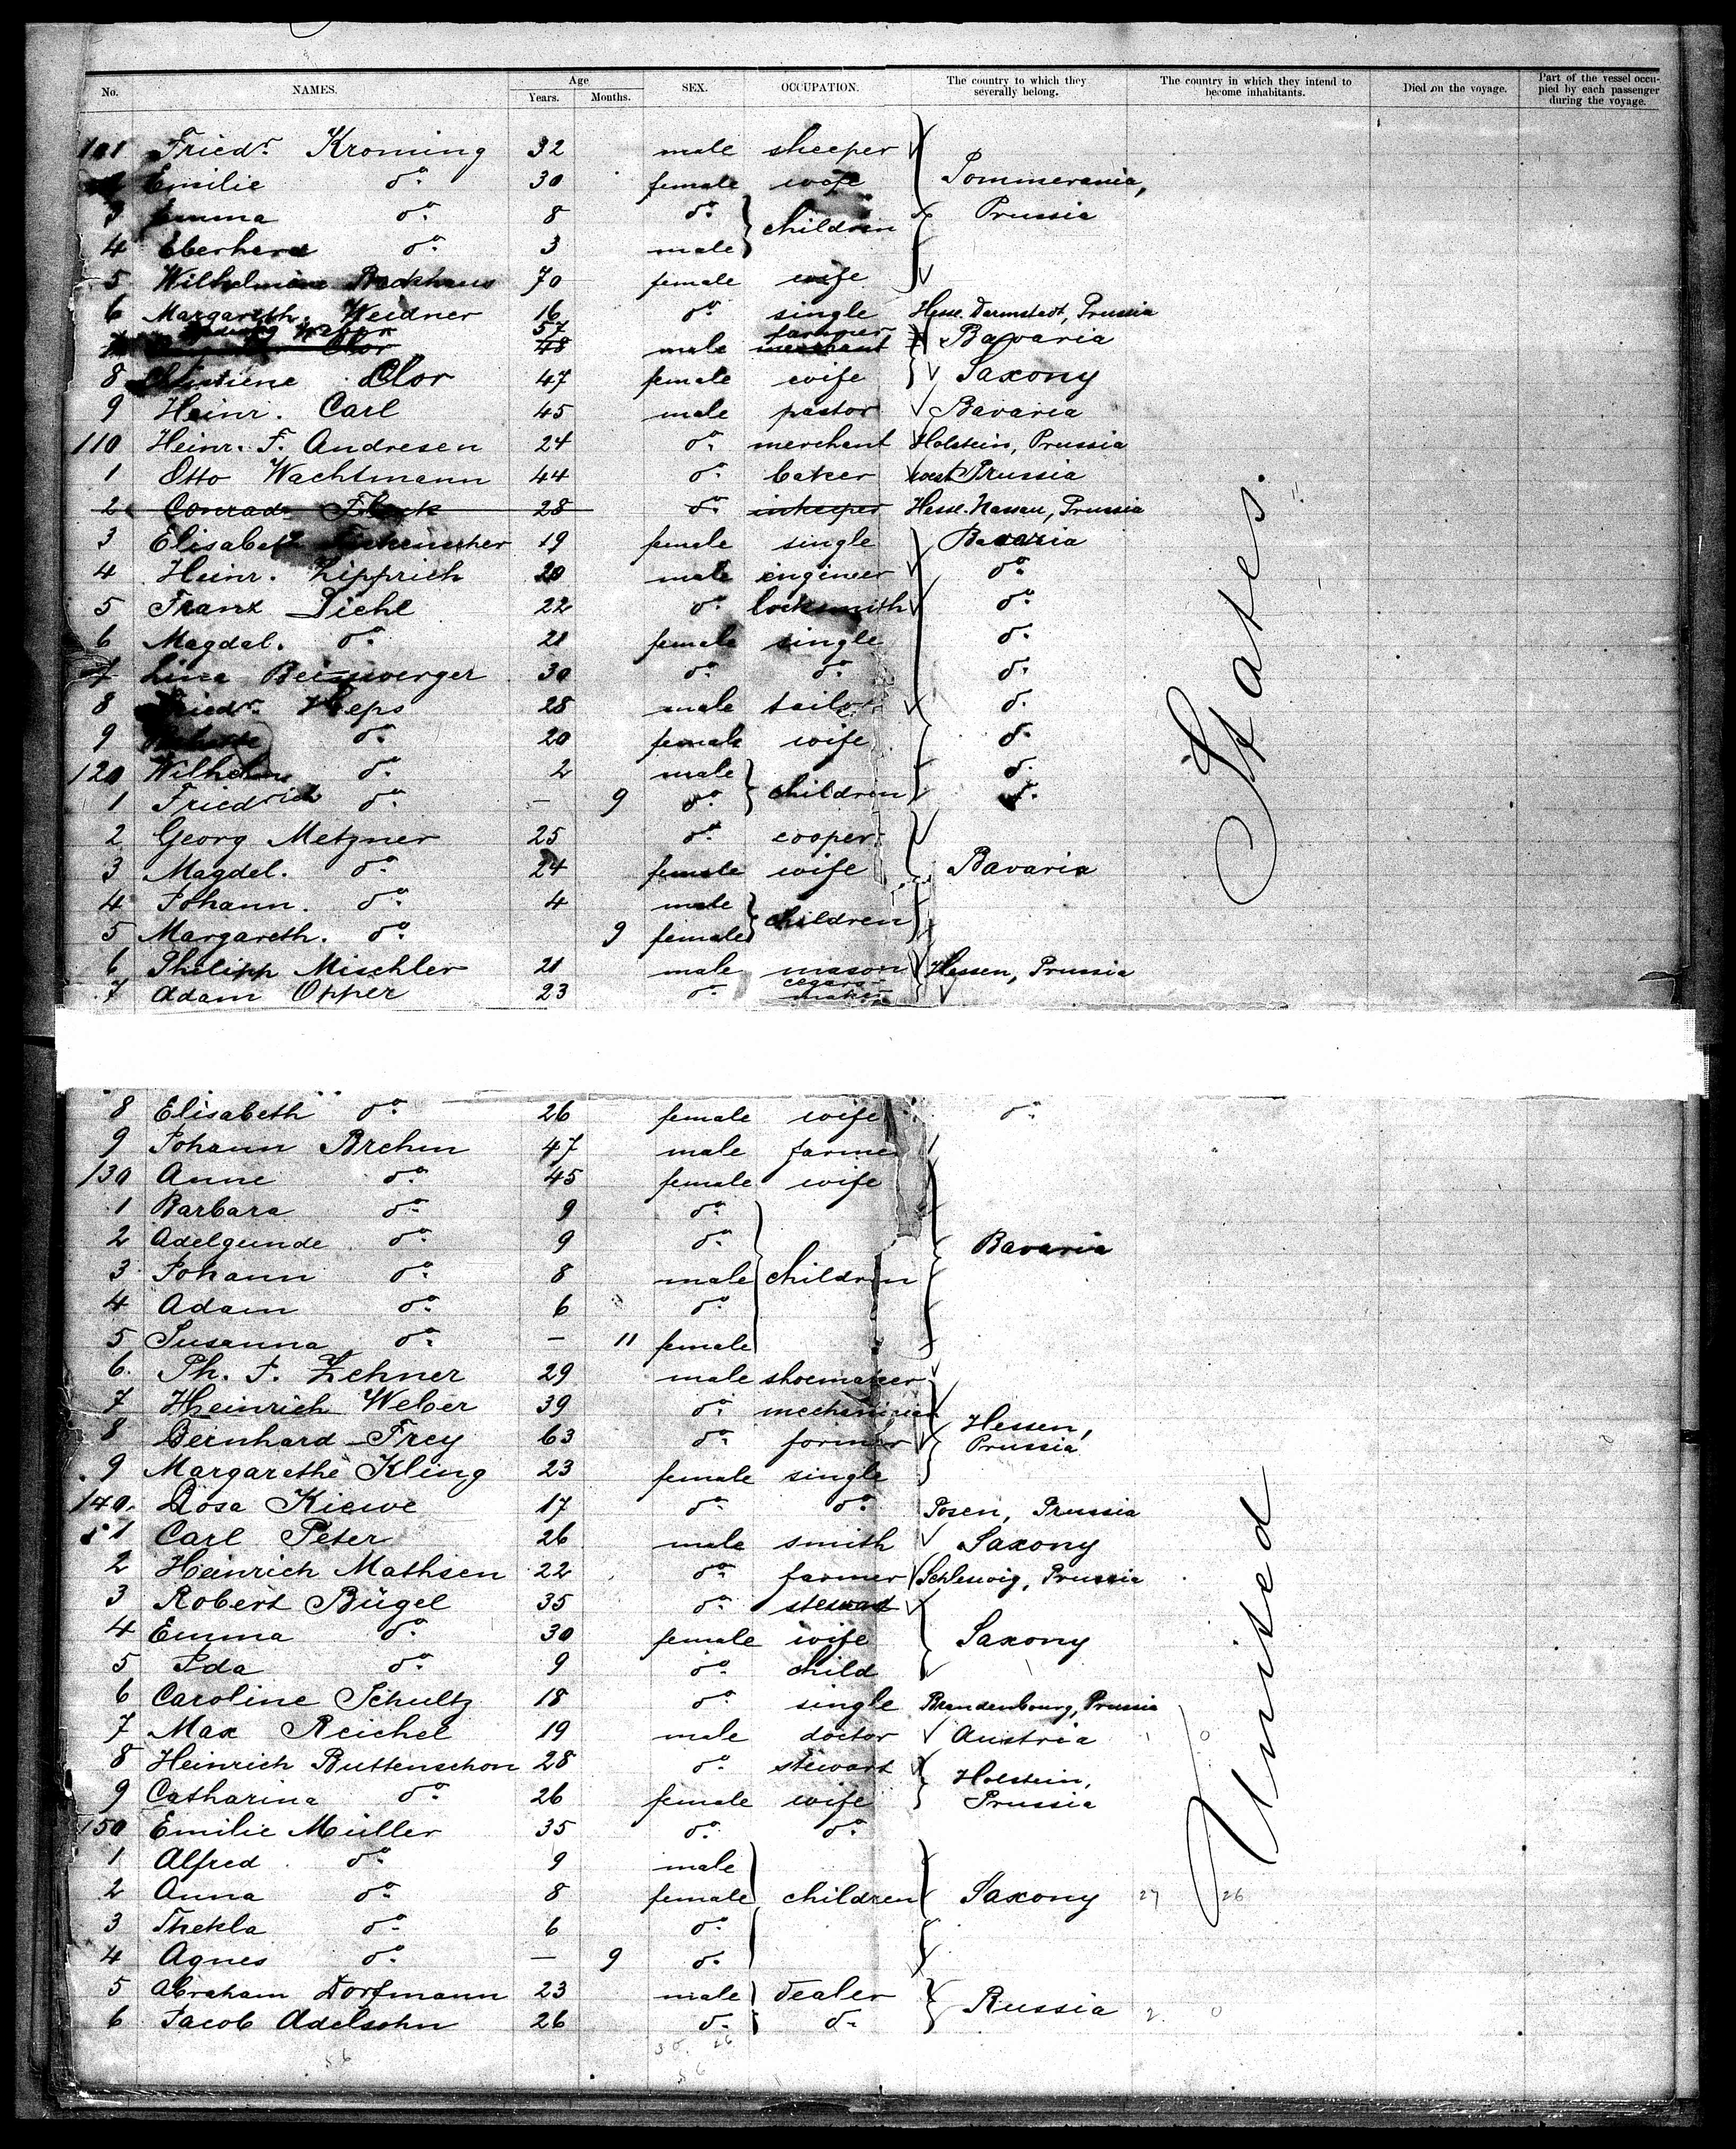 No. NAMES. Age Years. Months. SEX. OCCUPATION. The country to which they severally belong. The country in which they intend to become inhabitants. Died on the voyage. Part of the vessel occupied by each passenger during the voyage.
101 Friedr. Kroming 32 male sheeper
Emilie do. 30 female wife Pommerania,
3 Emma do. 8 do. children Prussia
4 Eberhard do. 3 male
5 Wilhelmine 70 female wife
6 Margareth. Weidner 16 do. single Hesse-Darmstedt, Prussia
57 farmer
Clor 48 male merchant Bavaria
8 Clor 47 female wife Saxony
9 Heinr. Carl 45 male pastor Bavaria
110 Heinr. F. Andresen 24 do. merchant Holstein, Prussia
1 Otto Wachtmann 44 do. baker west Prussia
2 Conrad 28 do. inkeeper Hesse-Nassau, Prussia
3 Elisabeth 19 female single Bavaria
4 Heinr. Zipprich 20 male engineer do.
5 Franz Diehl 22 do. locksmith do.
6 Magdal. do. 21 female single do.
7 Lina 30 do. do. do.
8 Friedr. 28 male tailor do.
9 do. 20 female wife do.
120 Wilhelm do. 2 male children do.
1 Friedrich do. — 9 do. do.
2 Georg Metzner 25 do. cooper
3 Magdel. do. 24 female wife Bavaria
4 Johann. do. 4 male children
5 Margareth. do. 9 female
6 Philipp Mischler 21 male mason Hessen, Prussia
7 Adam Opper 23 do. cegars-
maker
8 Elisabeth do. 26 female wife do.
9 Johann Brehm 47 male farmer
130 Anne do. 45 female wife
1 Barbara do. 9 do.
2 Adelgunde do. 9 do. Bavaria
3 Johann do. 8 male children
4 Adam do. 6 do.
5 Susanna do. — 11 female
6. Ph. J. Zehner 29 male shoemaker
7 Heinrich Weber 39 do. mechanician Hessen,
8 Bernhard Frey 63 do. former Prussia
9 Margarethe Kling 23 female single
140. Rosa Kiewe 17 do. do. Posen, Prussia
1 Carl Peter 26 male smith Saxony
2 Heinrich Mathsen 22 do. farmer Schleswig, Prussia
3 Robert Bügel 35 do. steward
4 Emma do. 30 female wife Saxony
5 Ida do. 9 do. child
6 Caroline Schultz 18 do. single Brandenbourg, Prussia
7 Max Reichel 19 male doctor Austria
8 Heinrich Buttenschon 28 do. stewart Holstein,
9 Catharina do. 26 female wife Prussia
150 Emilie Müller 35 do. do.
1 Alfred do. 9 male
2 Anna do. 8 female children Saxony 27 26
3 Thekla do. 6 do.
4 Agnes do. — 9 do.
5 Abraham Dorfmann 23 male dealer Russia 2 0
6 Jacob Adelsohn 26 do. do.
56
30 26
56
United States.